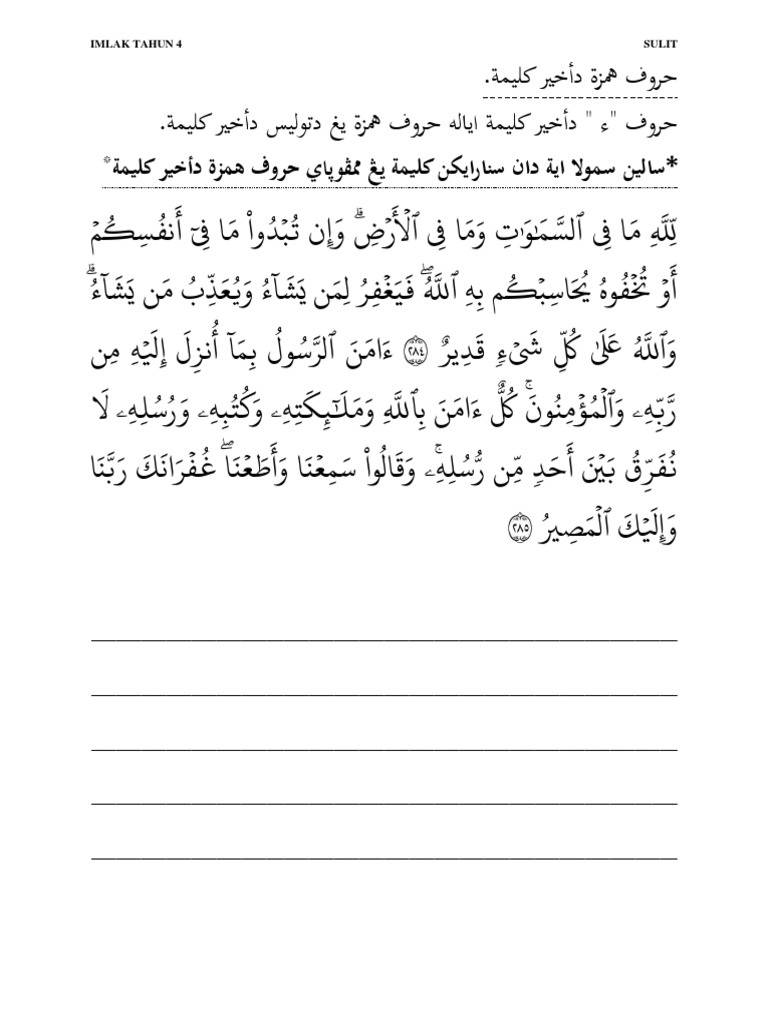 IMLAK TAHUN 4 SULIT
حروف همزة دأخير كليمة.
حروف "ء " دأخير كليمة اياله حروف همزة يڠ دتوليس دأخير كليمة.
*سالين سمولا اية دان سنارايكن كليمة يڠ ممڤوياي حروف همزة دأخير كليمة*
لِّلَّهِ مَا فِى ٱلسَّمَـٰوَٰتِ وَمَا فِى ٱلْأَرْضِ ۗ وَإِن تُبْدُوا۟ مَا فِىٓ أَنفُسِكُمْ
أَوْ تُخْفُوهُ يُحَاسِبْكُم بِهِ ٱللَّهُ ۖ فَيَغْفِرُ لِمَن يَشَآءُ وَيُعَذِّبُ مَن يَشَآءُ ۗ
وَٱللَّهُ عَلَىٰ كُلِّ شَىْءٍ قَدِيرٌ ٢٨٤ ءَامَنَ ٱلرَّسُولُ بِمَآ أُنزِلَ إِلَيْهِ مِن
رَّبِّهِۦ وَٱلْمُؤْمِنُونَ ۚ كُلٌّ ءَامَنَ بِٱللَّهِ وَمَلَـٰٓئِكَتِهِۦ وَكُتُبِهِۦ وَرُسُلِهِۦ لَا
نُفَرِّقُ بَيْنَ أَحَدٍ مِّن رُّسُلِهِۦ ۚ وَقَالُوا۟ سَمِعْنَا وَأَطَعْنَا ۖ غُفْرَانَكَ رَبَّنَا
وَإِلَيْكَ ٱلْمَصِيرُ ٢٨٥